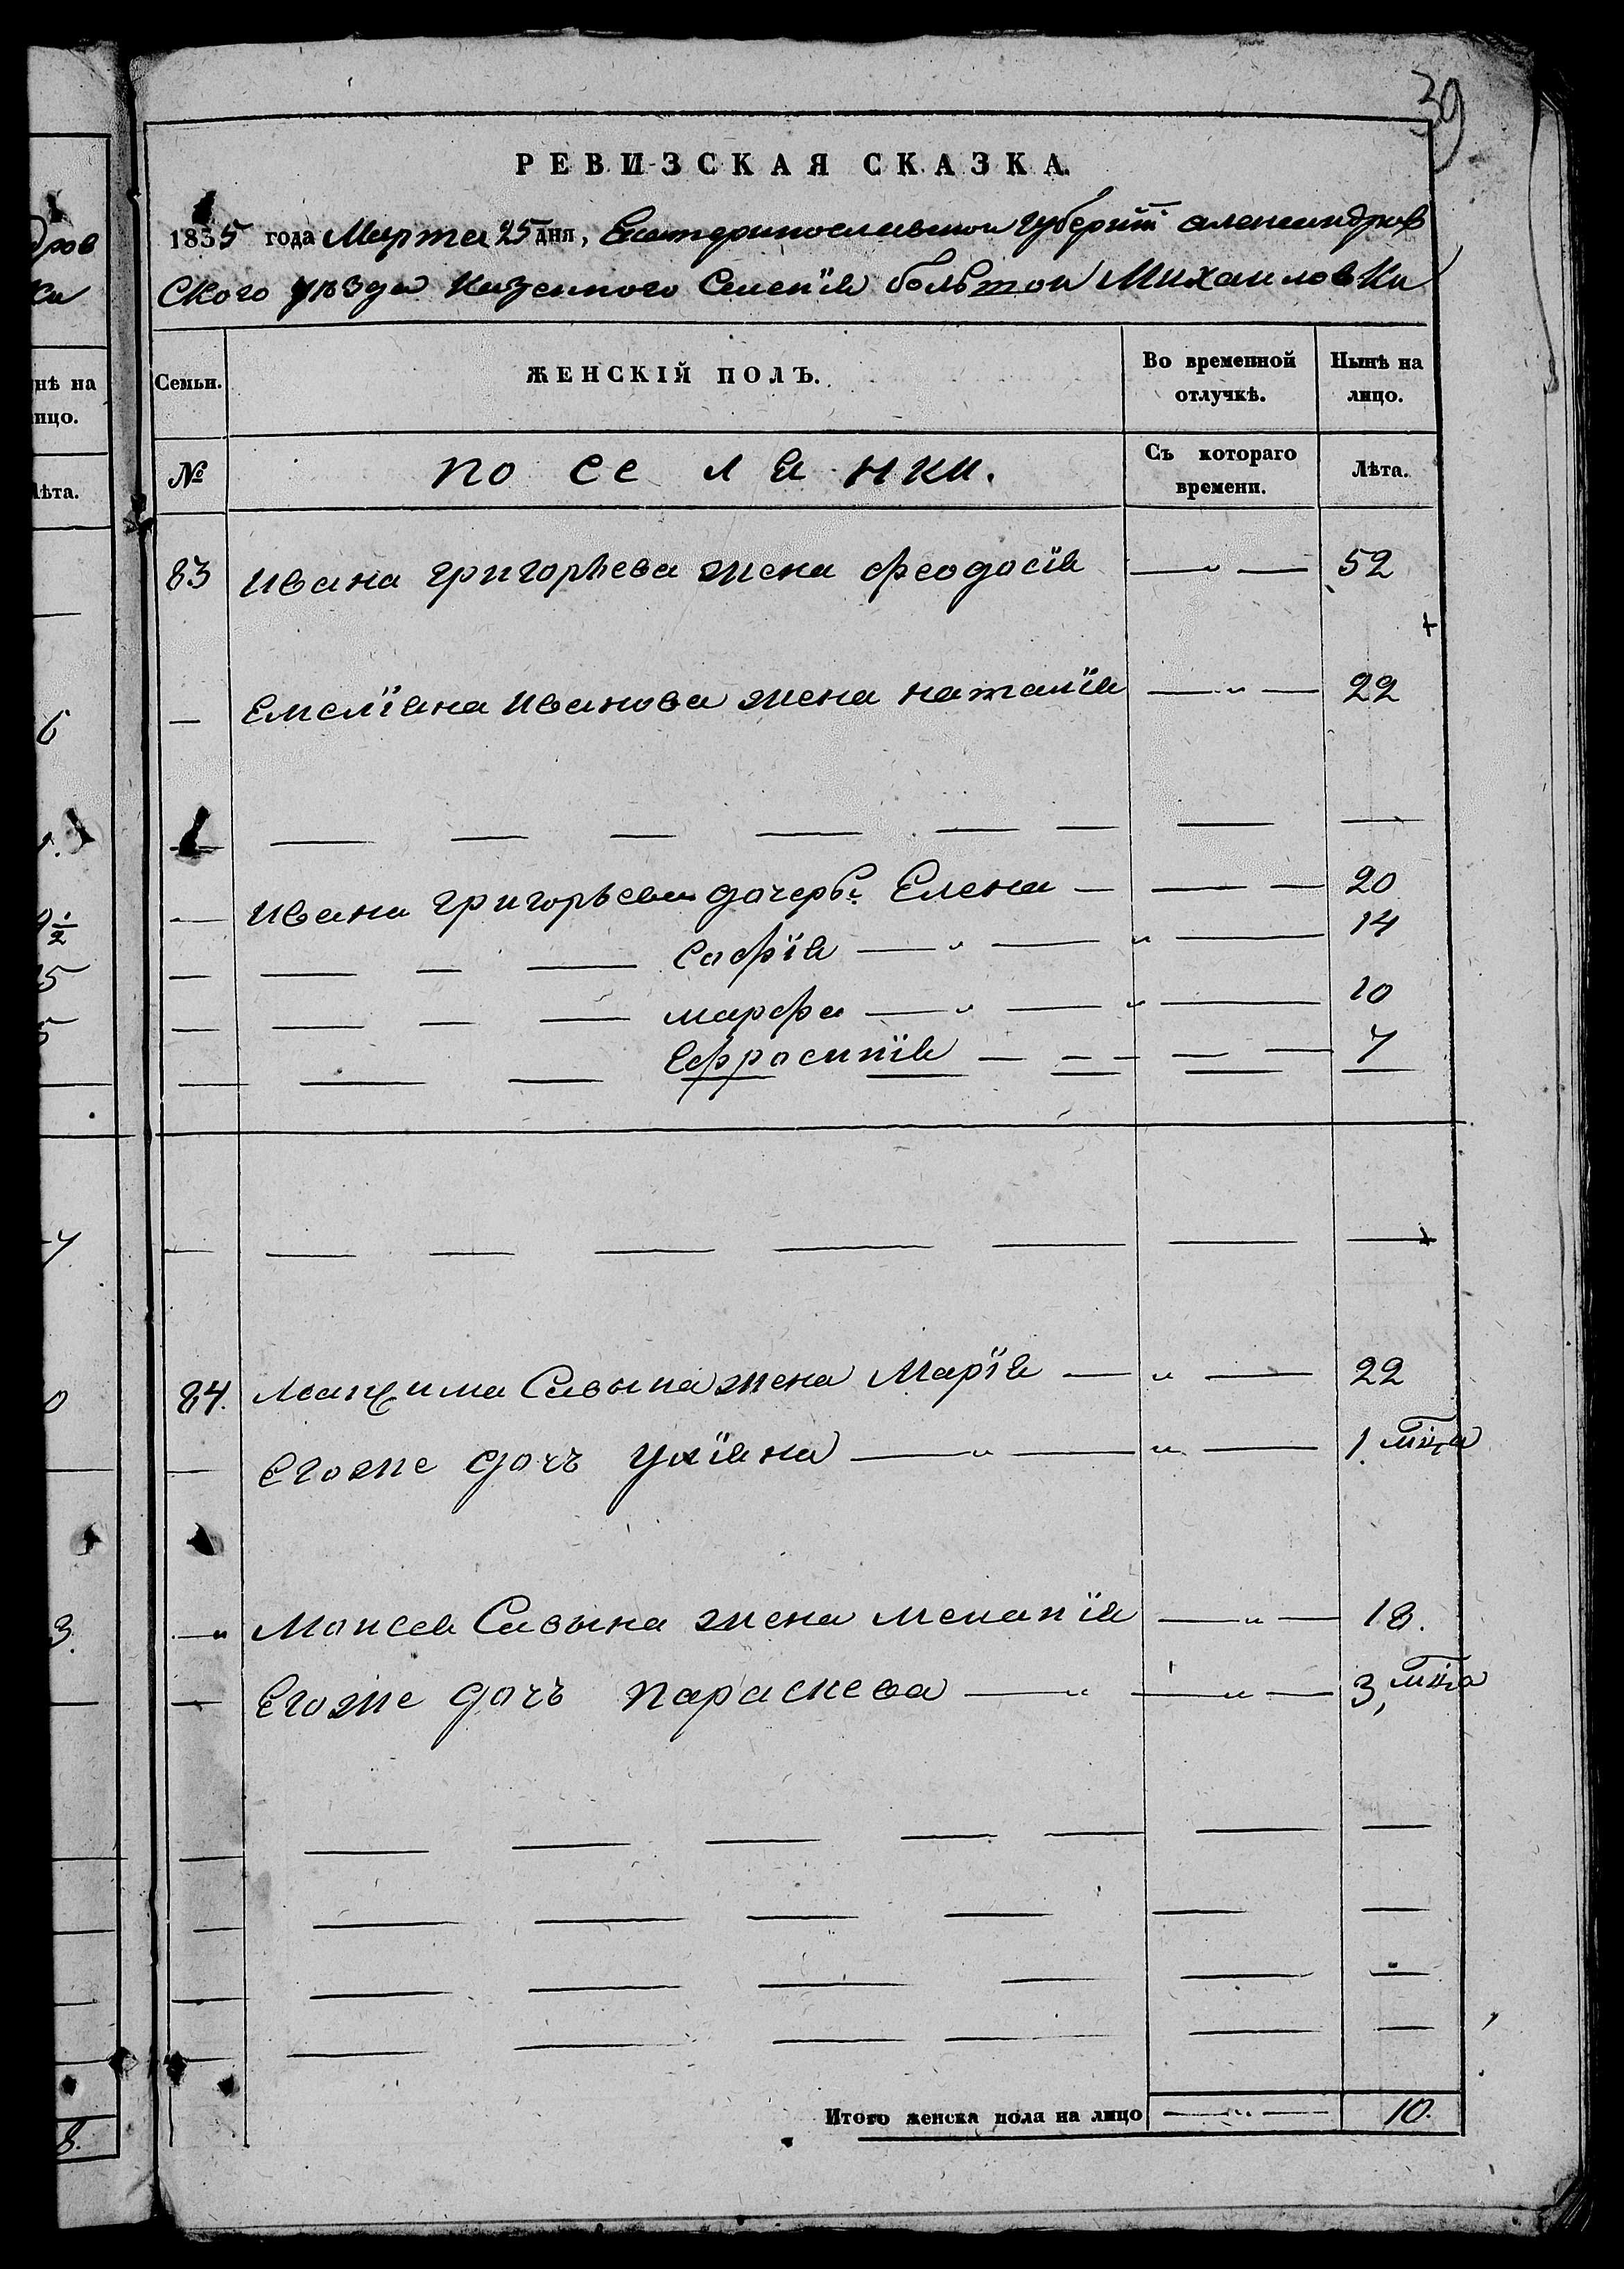 39
РЕВИЗСКАЯ СКАЗКА.
1835 года Марта 25 дня, Екатеринославской губернїи александров
ского уѣзда Казенного Селенїя большой Михаиловки
Семьи. ЖЕНСКІЙ ПОЛЪ. Во временной отлучкѣ. Нынѣ на лицо.
№ поселянки. Съ котораго времени. Лѣта.
83 Ивана григорьева жена феодосїя 52
Емелїяна Иванова жена наталїя 22
Ивана григорьева дочери Елена 20
Софїя 14
марфа 10
Ефросинїя 7
84. Максима Савына жена Марїя 22
Егоже дочь Улїяна 1.
Моисея Савына жена меланїя 18.
Егоже дочь параскева 3,
Итого женска пола на лицо 10.